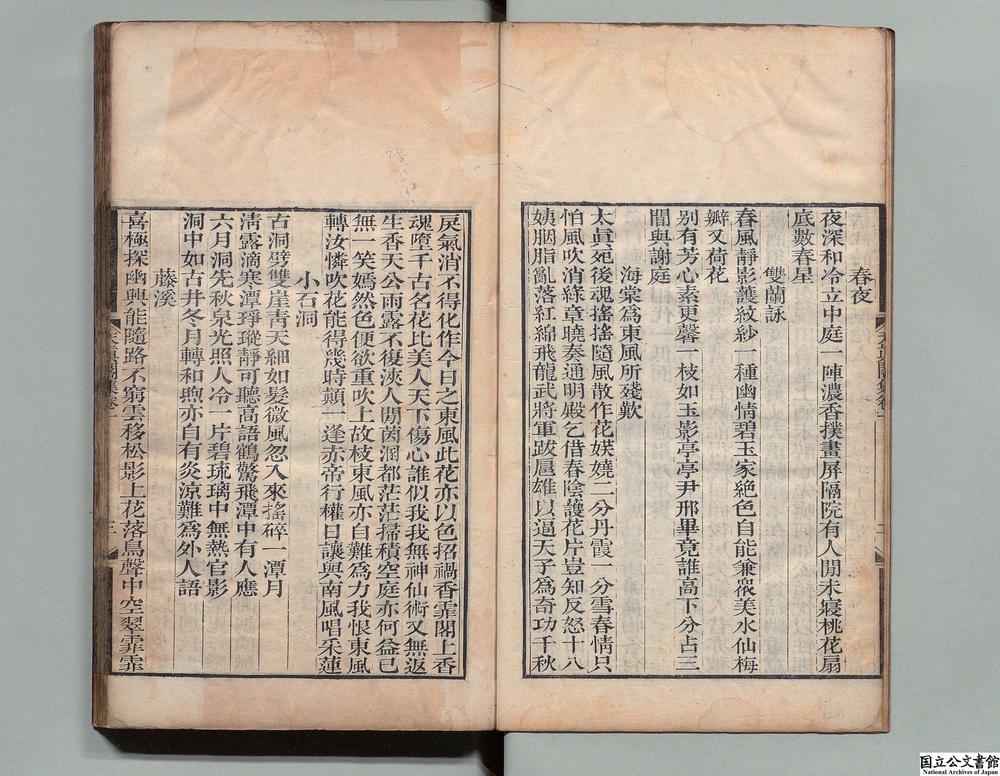 春夜
夜深和冷立中庭一陣濃香撲畫屏隔院有人閒未寢桃花扇
底數春星
雙蘭詠
春風靜影護紋紗一種幽情碧玉家絶色自能兼衆美水仙梅
瓣又荷花
別有芳心素更馨一枝如玉影亭亭尹邢畢竟誰高下分占三
閭與謝庭
海棠爲東風所殘歎
太眞死後魂搖搖隨風散作花媖嬈二分丹霞一分雪春情只
怕風吹消綠章曉奏通明殿乞借春陰護花片豈知反怒十八
姨胭脂亂落紅綿飛龍武將軍跋扈雄以逼天子爲奇功千秋
戾氣消不得化作今日之東風此花亦以色招禍香霏閣上香
魂墮千古名花比美人天下傷心誰似我我無神仙術又無返
生香天公雨露不復浹人閒茵溷都茫茫掃積空庭亦何益已
無一笑嫣然色便欲重吹上故枝東風亦自難爲力我恨東風
轉汝憐吹花能得幾時顛一逢赤帝行權日讓與南風唱采蓮
小石洞
古洞劈雙崖靑天細如髮微風忽入來搖碎一潭月
淸露滴寒潭琤瑽靜可聽高語鶴驚飛潭中有人應
六月洞先秋泉光照人冷一片碧琉璃中無熱官影
洞中如古井冬月轉和煦亦自有炎涼難爲外人語
藤溪
喜極探幽興能隨路不窮雲移松影上花落鳥聲中空翠霏霏
国立公文書館
National Archives of Japan